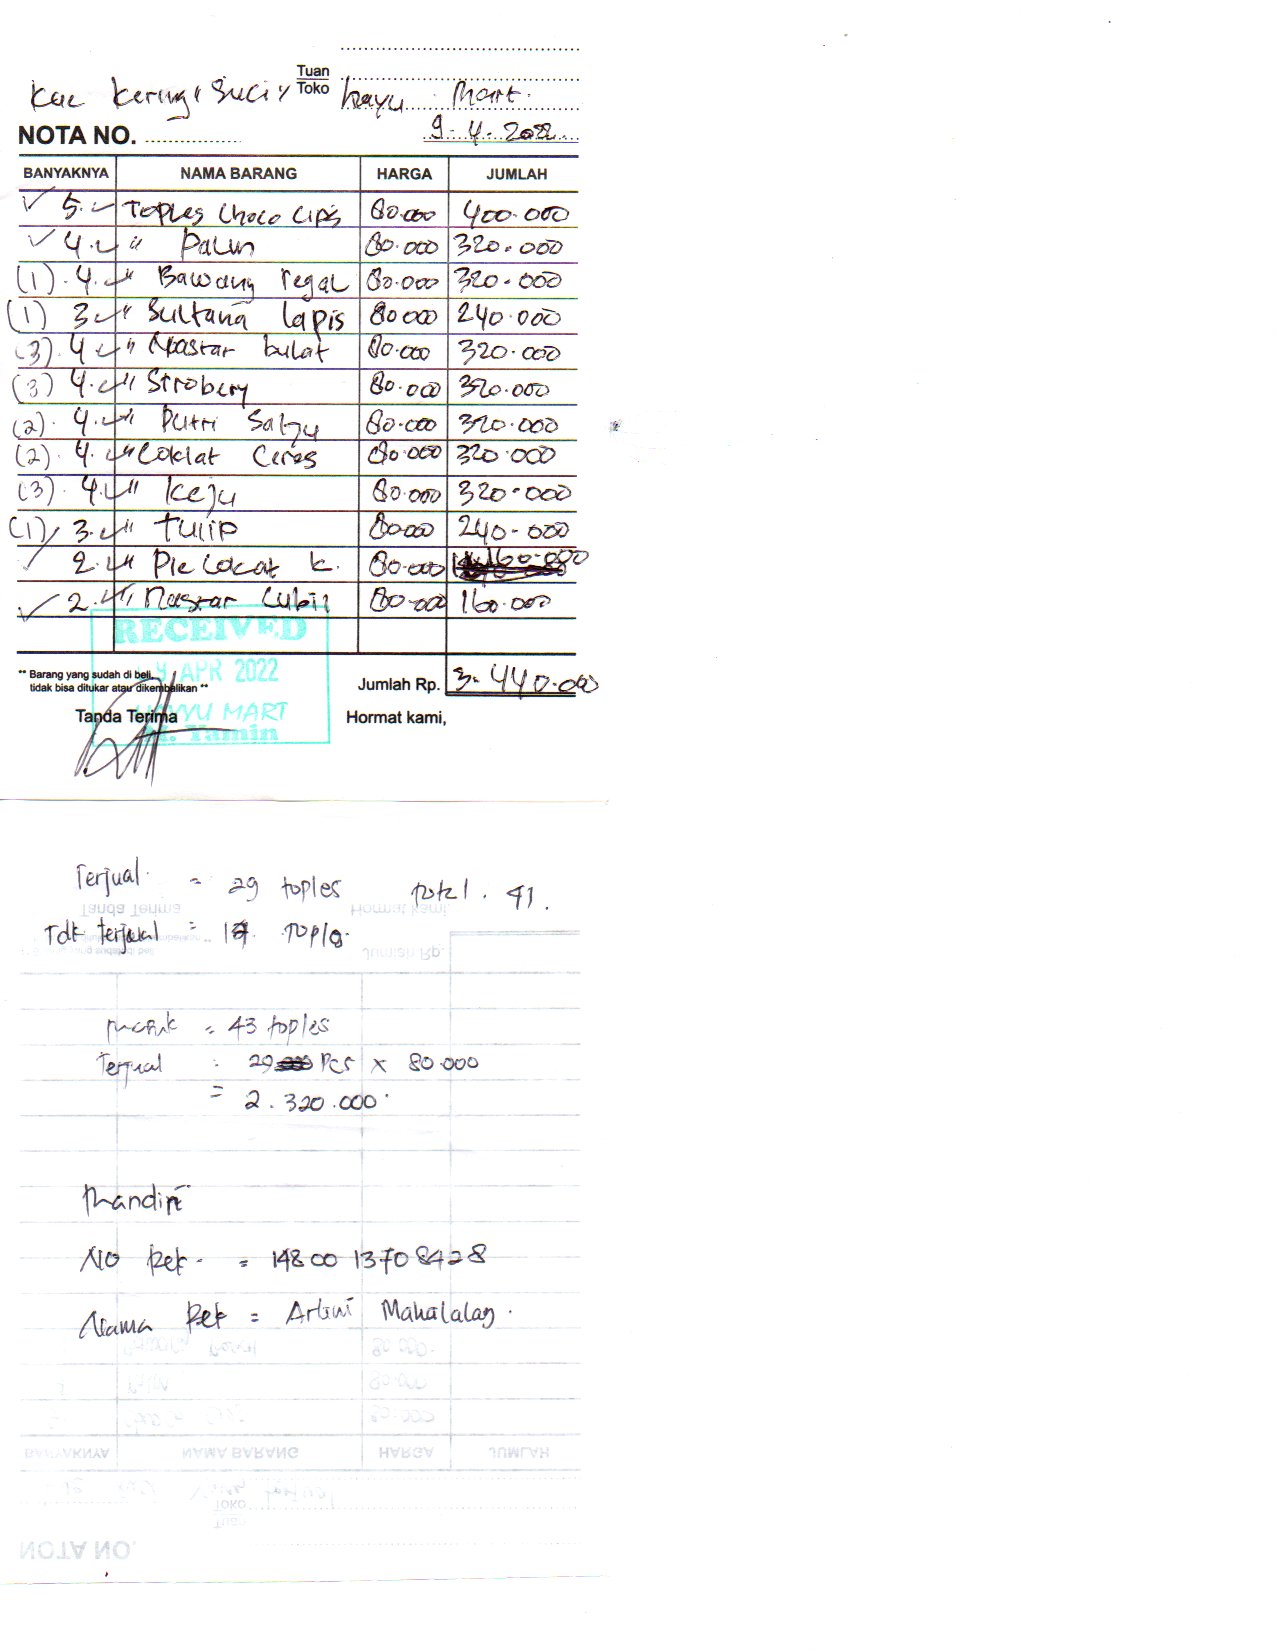 Tuan
Kue Kering "Suci" Toko hayu Mart.
NOTA NO. 9-4-2022
BANYAKNYA NAMA BARANG HARGA JUMLAH
✓ 5. Toples Choco Cips 80.000 400.000
✓ 4. " Palm 80.000 320.000
(1). 4. " Bawang regal 80.000 320.000
(1) 3 " Sultana lapis 80000 240.000
(3). 4 " Nastar bulat 80.000 320.000
(3) 4. " Strobery 80.000 320.000
(2). 4. " Putri Salju 80.000 320.000
(2). 4. " Coklat Ceres 80.000 320.000
(3). 4. " Keju 80.000 320.000
(1) 3. " tulip 80000 240.000
✓ 2. " Pie Cokat k. 80.000 160.000
✓ 2. " Nastar Cubit 80.000 160.000
RECEIVED
9 APR 2022
HAYYU MART
M. Yamin
** Barang yang sudah di beli,
tidak bisa ditukar atau dikembalikan **
Jumlah Rp. 3.440.000
Tanda Terima Hormat kami,
Terjual = 29 toples total. 41.
Tdk terjual = 14 Toples.
masuk = 43 toples
Terjual : 29 Pcs x 80.000
= 2.320.000
Mandiri
No Rek. = 14800 13708428
Nama Rek =